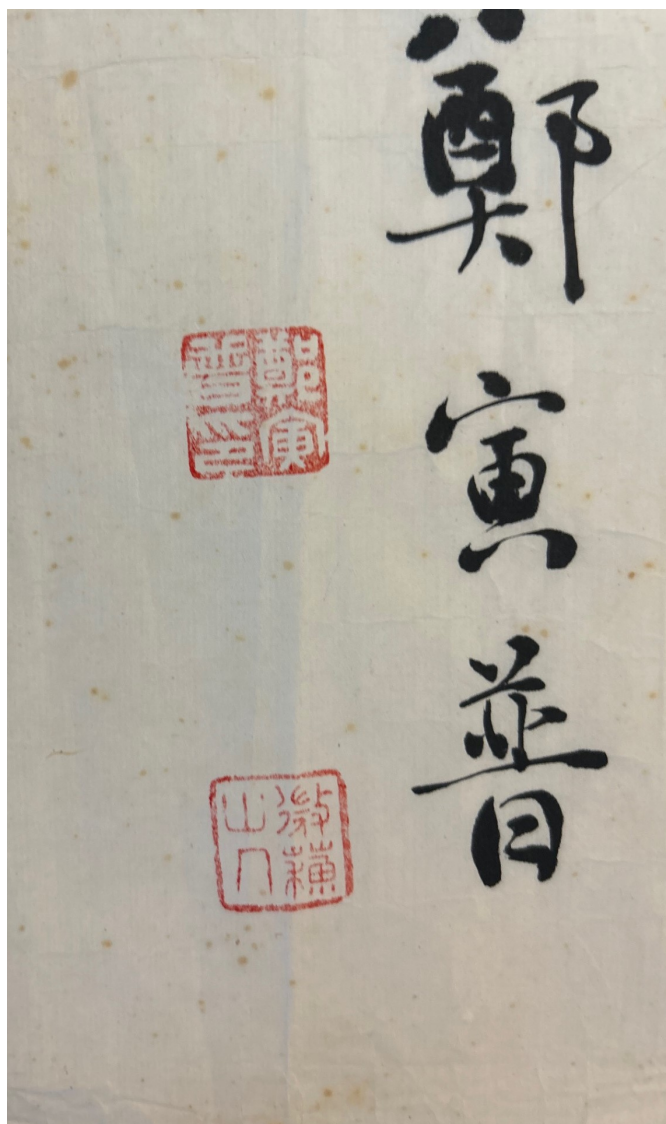 鄭寅普
鄭寅普印
薇蘓山人